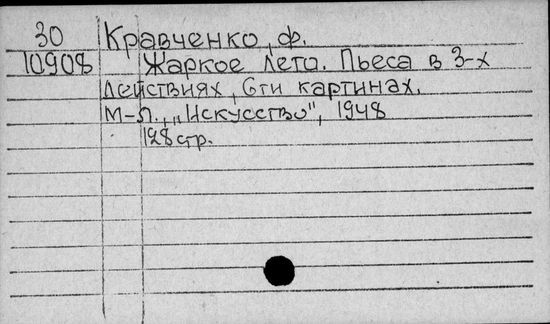 30 Кравченко, Ф.
10908 Жаркое лето. Пьеса в 3-х
действиях, 6ти картинах.
М-Л., „Искусство", 1948
128стр.